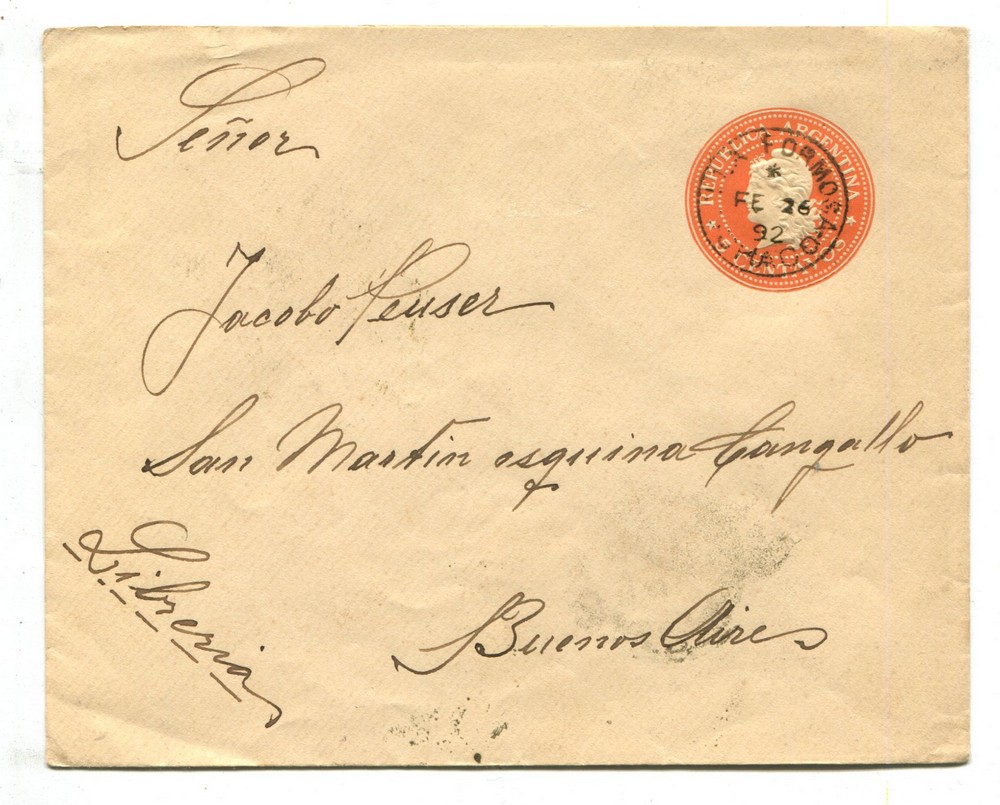 Señor
REPUBLICA ARGENTINA
FORMOSA
FE 26
92
CHACO
Jacobo Peuser
San Martin esquina Cangallo
Libreria
Buenos Aires